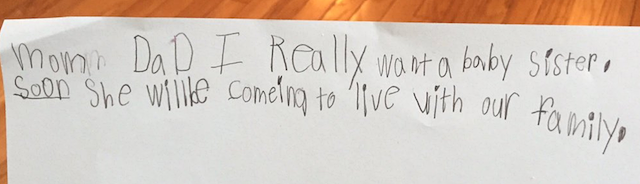 Mom DaD I Really want a baby sister.
Soon She will be comeing to live with our family.